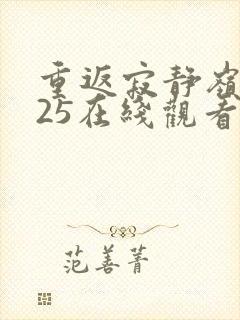 重返寂靜嶺
25在綫觀看
范善菁